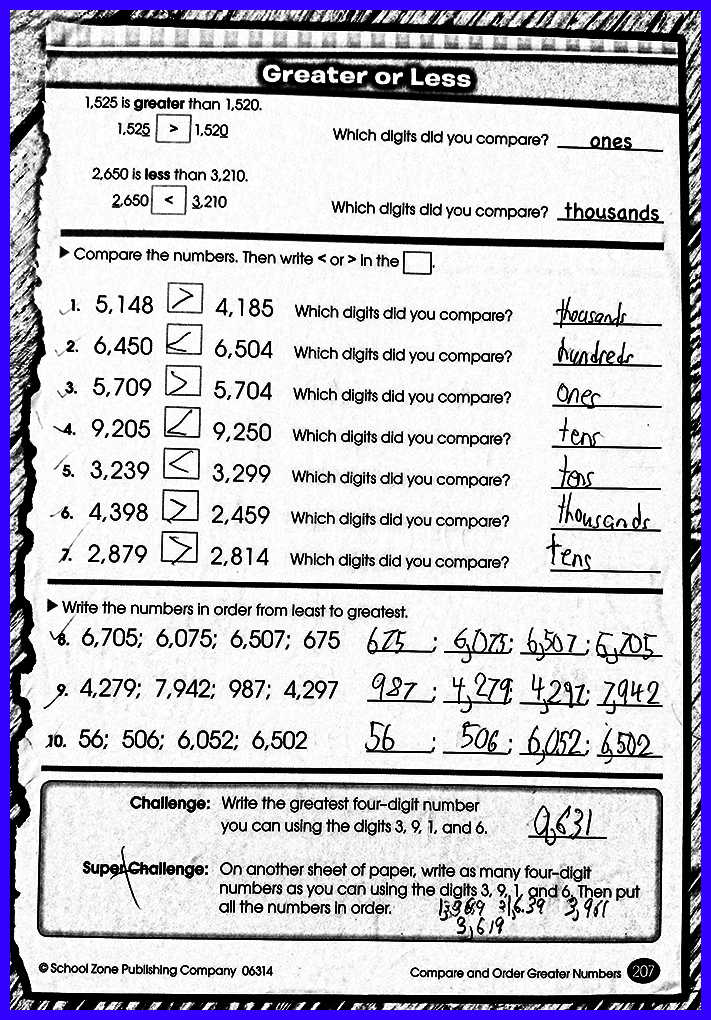 Greater or Less
1,525 is greater than 1,520.
1,525 > 1,520 Which digits did you compare? ones
2,650 is less than 3,210.
2,650 < 3,210 Which digits did you compare? thousands
▶ Compare the numbers. Then write < or > in the □.
1. 5,148 > 4,185 Which digits did you compare? thousands
2. 6,450 < 6,504 Which digits did you compare? hundreds
3. 5,709 > 5,704 Which digits did you compare? ones
4. 9,205 < 9,250 Which digits did you compare? tens
5. 3,239 < 3,299 Which digits did you compare? tens
6. 4,398 > 2,459 Which digits did you compare? thousands
7. 2,879 > 2,814 Which digits did you compare? tens
▶ Write the numbers in order from least to greatest.
8. 6,705; 6,075; 6,507; 675 675 ; 6,075; 6,507; 6,705
9. 4,279; 7,942; 987; 4,297 987 ; 4,279; 4,297; 7,942
10. 56; 506; 6,052; 6,502 56 ; 506 ; 6,052; 6,502
Challenge: Write the greatest four-digit number
you can using the digits 3, 9, 1, and 6. 9,631
Super Challenge: On another sheet of paper, write as many four-digit
numbers as you can using the digits 3, 9, 1, and 6. Then put
all the numbers in order. 3,961
3,619
© School Zone Publishing Company 06314 Compare and Order Greater Numbers 207